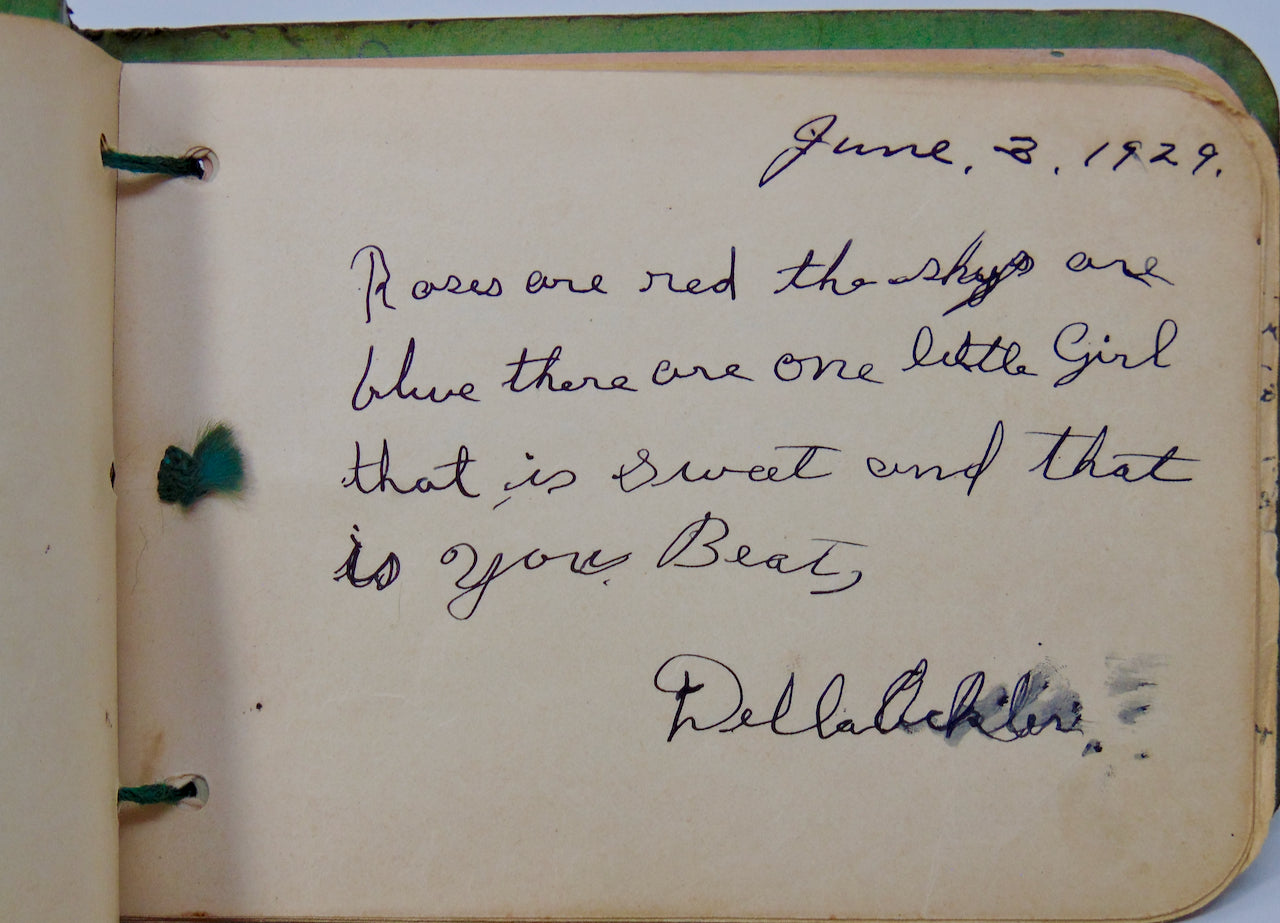 June, 3, 1929.
Roses are red the skys are
blue there are one little Girl
that is sweet and that
is you Beat,
Della